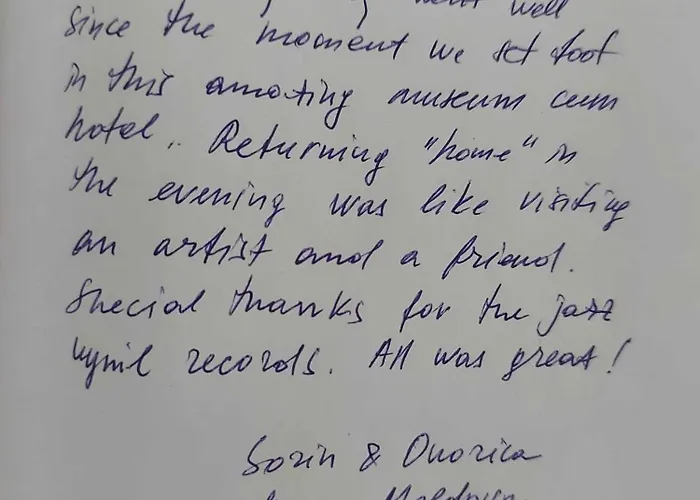 well
Since the moment we set foot
in this amazing museum cum
hotel.. Returning "home" in
the evening was like visiting
an artist and a friend.
Special thanks for the jazz
vynil records. All was great!
Sorin & Onorica